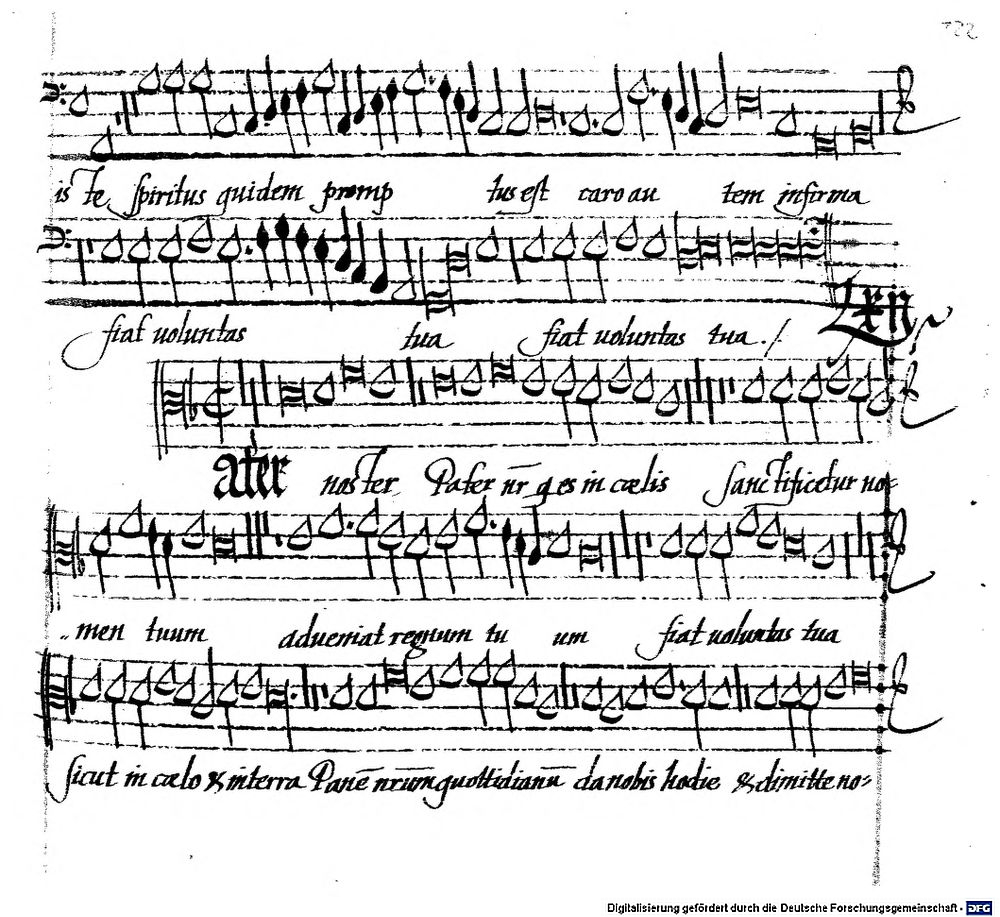 122
is te spiritus quidem promp tus est caro au tem infirma
fiat uoluntas tua fiat uoluntas tua ./.
Lxn
ater noster Pater nr̄ q es in cœlis sanctificetur no=
..men tuum adueniat regnum tu um fiat uoluntas tua
sicut in cœlo & interra Panē nrūm quottidianū da nobis hodie & dimitte no=
Digitalisierung gefördert durch die Deutsche Forschungsgemeinschaft - DFG